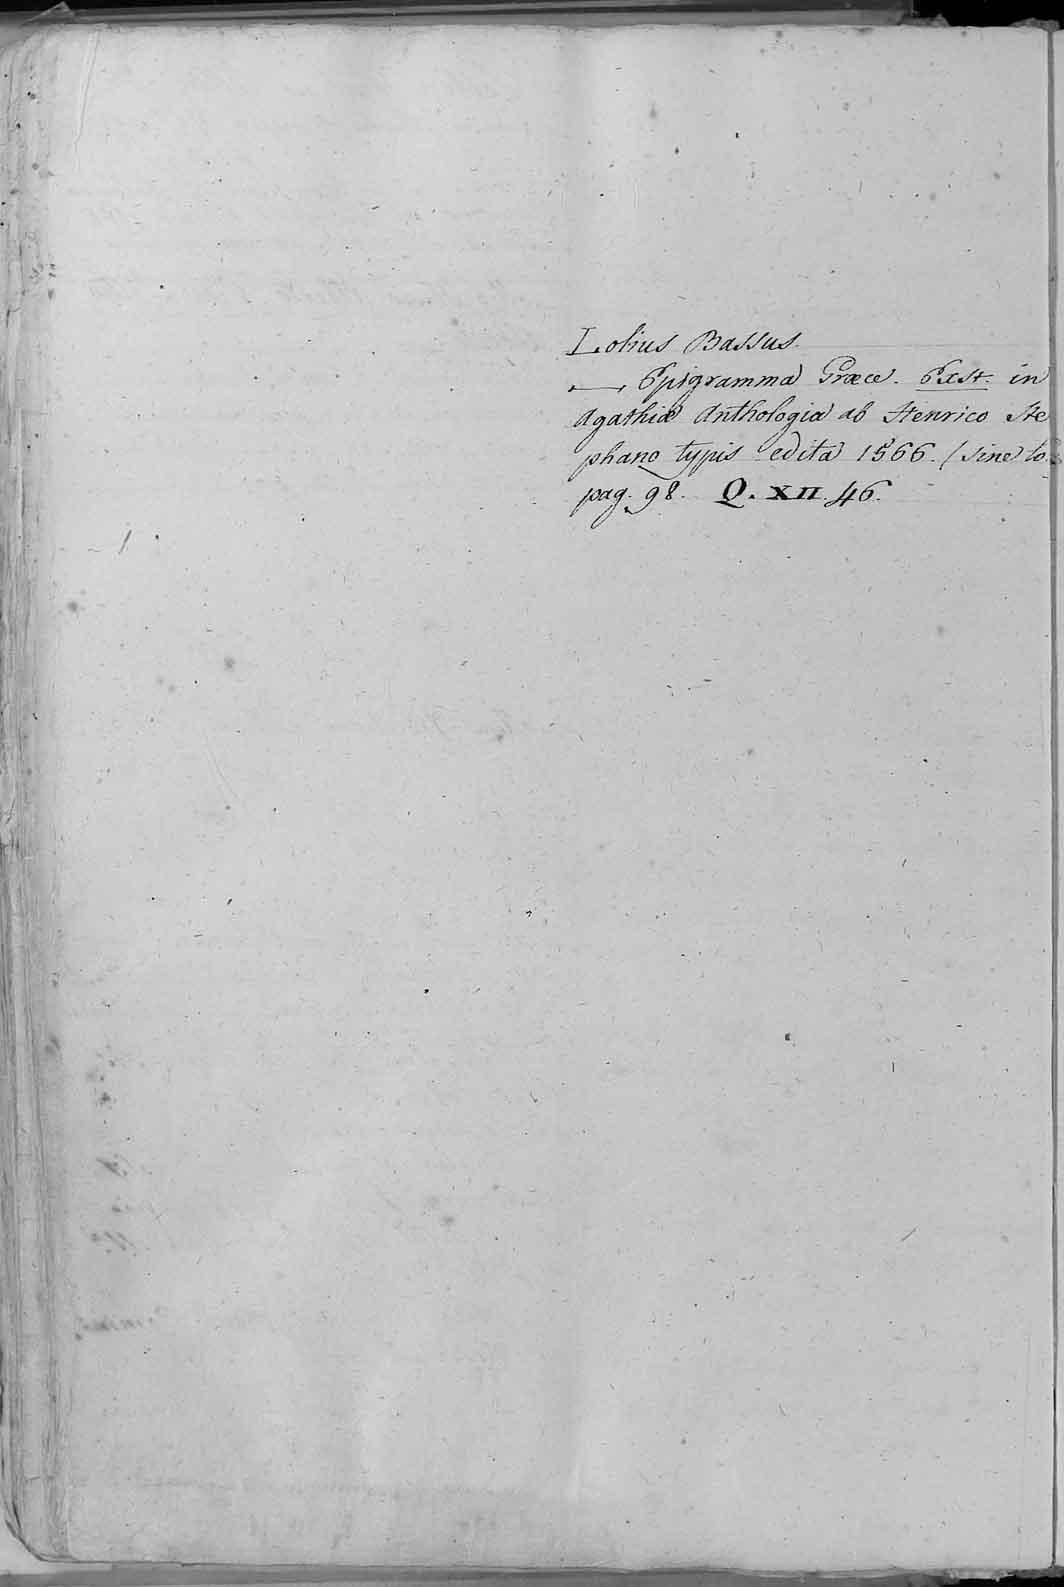 Lolius Bassus.
—, Epigramma Græce. Exst. in
Agathiæ Anthologia ab Henrico Ste
phano typis edita 1566. (sine lo.
pag. 98. Q. XII. 46.